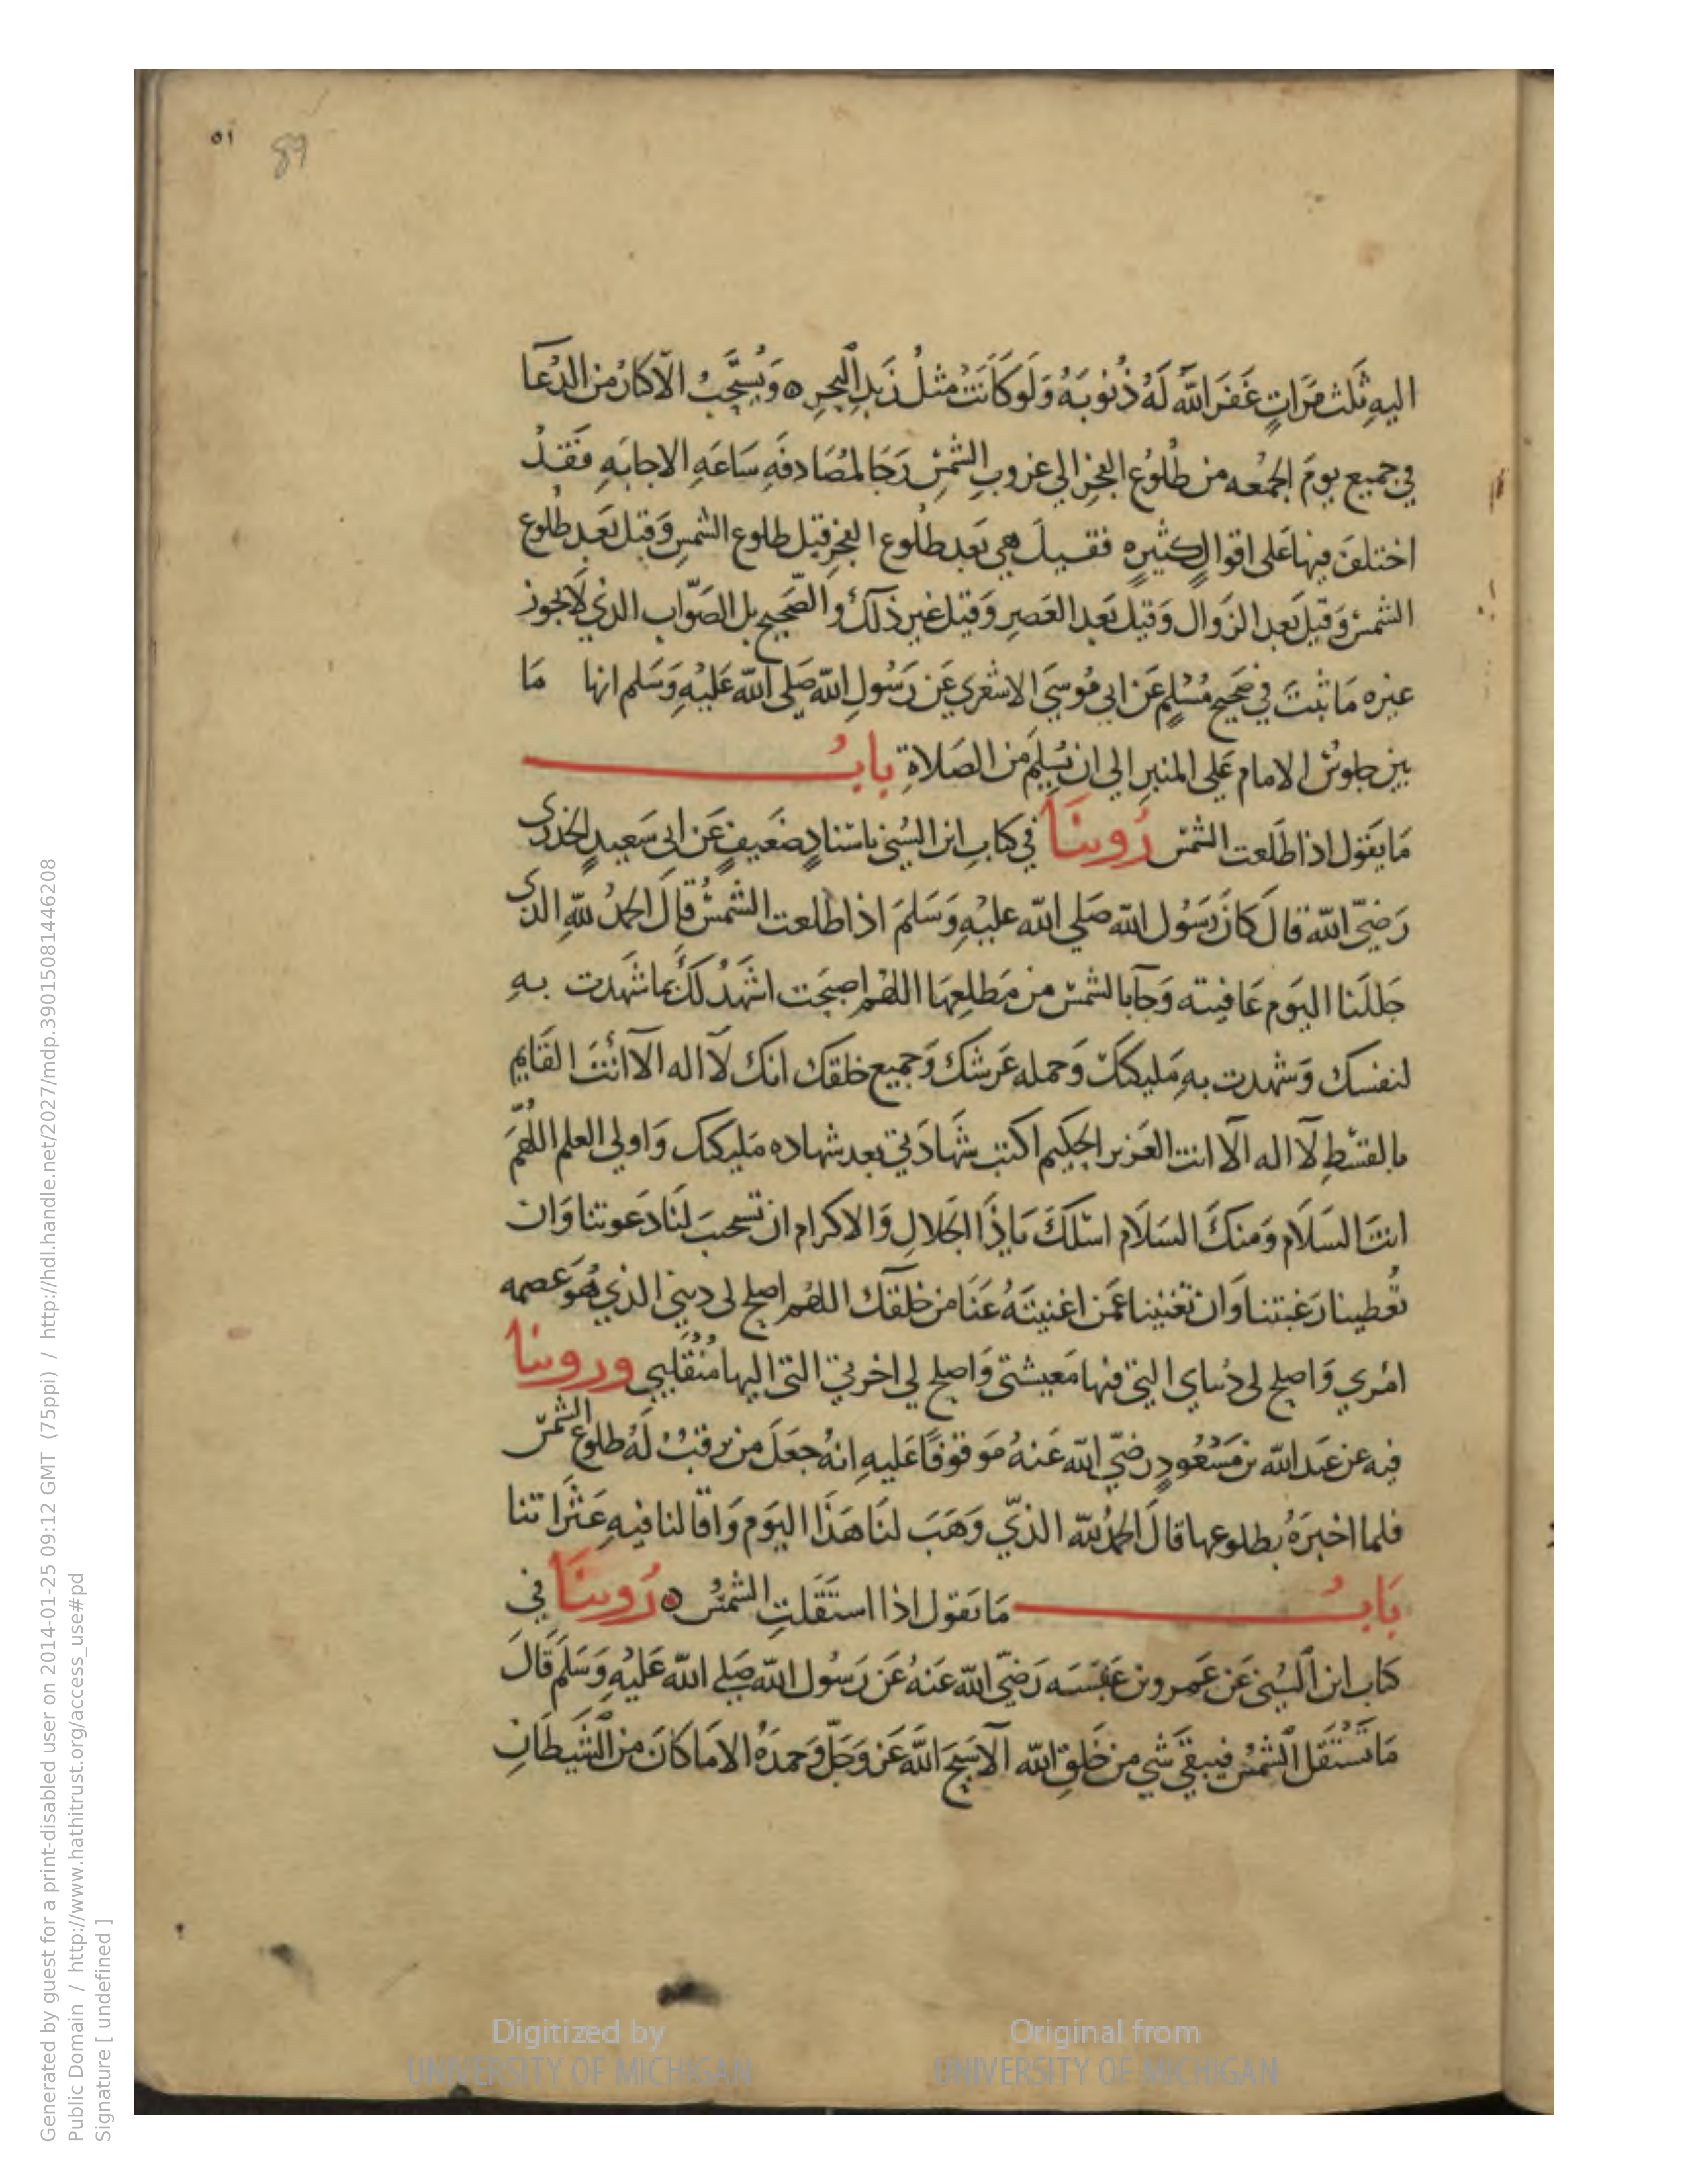 ٥١
89
اليهِ ثلث مَرَّاتٍ غَفَرَ اللّٰه لَهُ ذُنُوبَهُ وَلَو كَانَتْ مثلُ زَبَدِ البحرِ ٥ وَيُستَحَبُّ الاكثارُ من الدُّعَآ
في جميع يومَ الجمُعه من طُلُوع الفجرِ الى غروبِ الشمسِ رَجَا لمُصَادفَهِ سَاعَهِ الاجابَهِ فَقَدْ
اختلفَ فيها عَلى اقوالٍ كثيرهٍ فقيلَ هي بَعد طُلُوع الفجرِ قبل طلوع الشمسِ وَقيل بَعدَ طلُوع
الشمسْ وَقيلَ بَعد الزوال وَقيل بَعد العَصرِ وَقيل غير ذلكَ وَالصَّحيح بل الصَوَاب الذي لاَ يجوز
غيره مَا ثبتَ في صَحيح مُسْلِمٍ عَن ابي مُوسىَ الاشعَري عَن رَسُولِ اللّٰه صَلى اللّٰه عَليْهِ وَسَلم انها مَا
بين جلوسْ الامام عَلى المنبرِ الى ان يُسَلِّمَ من الصَلاةِ بابُ
مَا يَقول اذا طَلَعت الشمس رُوينَا في كتابِ ابن السُني باسْنادٍ ضَعيفٍ عَن ابى سَعيدٍ الخدرى
رَضيَ اللّٰه قالَ كانَ رَسُول اللّٰه صَلي اللّٰه عليْهِ وَسَلمَ اذا طلعت الشمسُ قالَ الحمدُ للّٰهِ الذى
جَللَنا اليَوم عَافيته وَجَآ بالشمسْ من مَطلِعِهَا اللهُم اصبَحت اشهَدُ لكَ بما شهَدت بهِ
لنفسك وَشهدت بهِ مَليكتكَ وَحمله عَرشكَ وَجميع خلقك انك لآ اله الآ انْتَ القَايم
بالقسْطِ لآ اله الآ انت العَزيز الحكيم اكتب شهَادَتي بعد شهاده مَليكتك وَاولي العلم اللهُمّ
انتَ السَلاَم وَمنكَ السَلاَم اسئلكَ يَاذَا الجَلالِ وَالاكرام ان تستجبَ لنَا دَعوتنا وَان
تُعطينا رَغبَتنا وَان تغنيَنا عَمّن اغنيتَهُ عَنَّا من خلقك اللهُم اصلح لى ديني الذي هُوَ عصمه
امْري وَاصلح لى دُنياي التي فيها مَعيشتى وَاصلح لي اخرتي التى اليها مُنْقَلبي وروينا
فيه عن عَبد اللّٰه بن مَسْعُودٍ رضيَ اللّٰه عَنهُ مَوقوفًا عَليهِ انهُ جعَلَ من يرقبُ لَهُ طلوعَ الشمسْ
فلما اخبرَهُ بطلوعها قالَ الحمدُ للّٰه الذّي وَهَبَ لنَا هَذَا اليَوم وَاقالنا فيهِ عَثَراتنا
بَابُ مَا يَقول اذا استَقَلتِ الشمْسُ ٥ رُوينَا في
كتاب ابن السُني عَن عَمرو بن عَبَسَه رَضيَ اللّٰه عَنهُ عَن رَسُول اللّٰه صَلى اللّٰه عَليْهِ وَسَلَم قَالَ
مَا تَسْتَقل الشمْس فيبقىَ شي من خَلقِ اللّٰه الاّ سَبَّحَ اللّٰهَ عَز وَجَلَّ وَحمدَهُ الا مَا كانَ من الشيطَانِ
Digitized by
UNIVERSITY OF MICHIGAN
Original from
UNIVERSITY OF MICHIGAN
Generated by guest for a print-disabled user on 2014-01-25 09:12 GMT (75ppi) / http://hdl.handle.net/2027/mdp.39015081446208
Public Domain / http://www.hathitrust.org/access_use#pd
Signature [ undefined ]